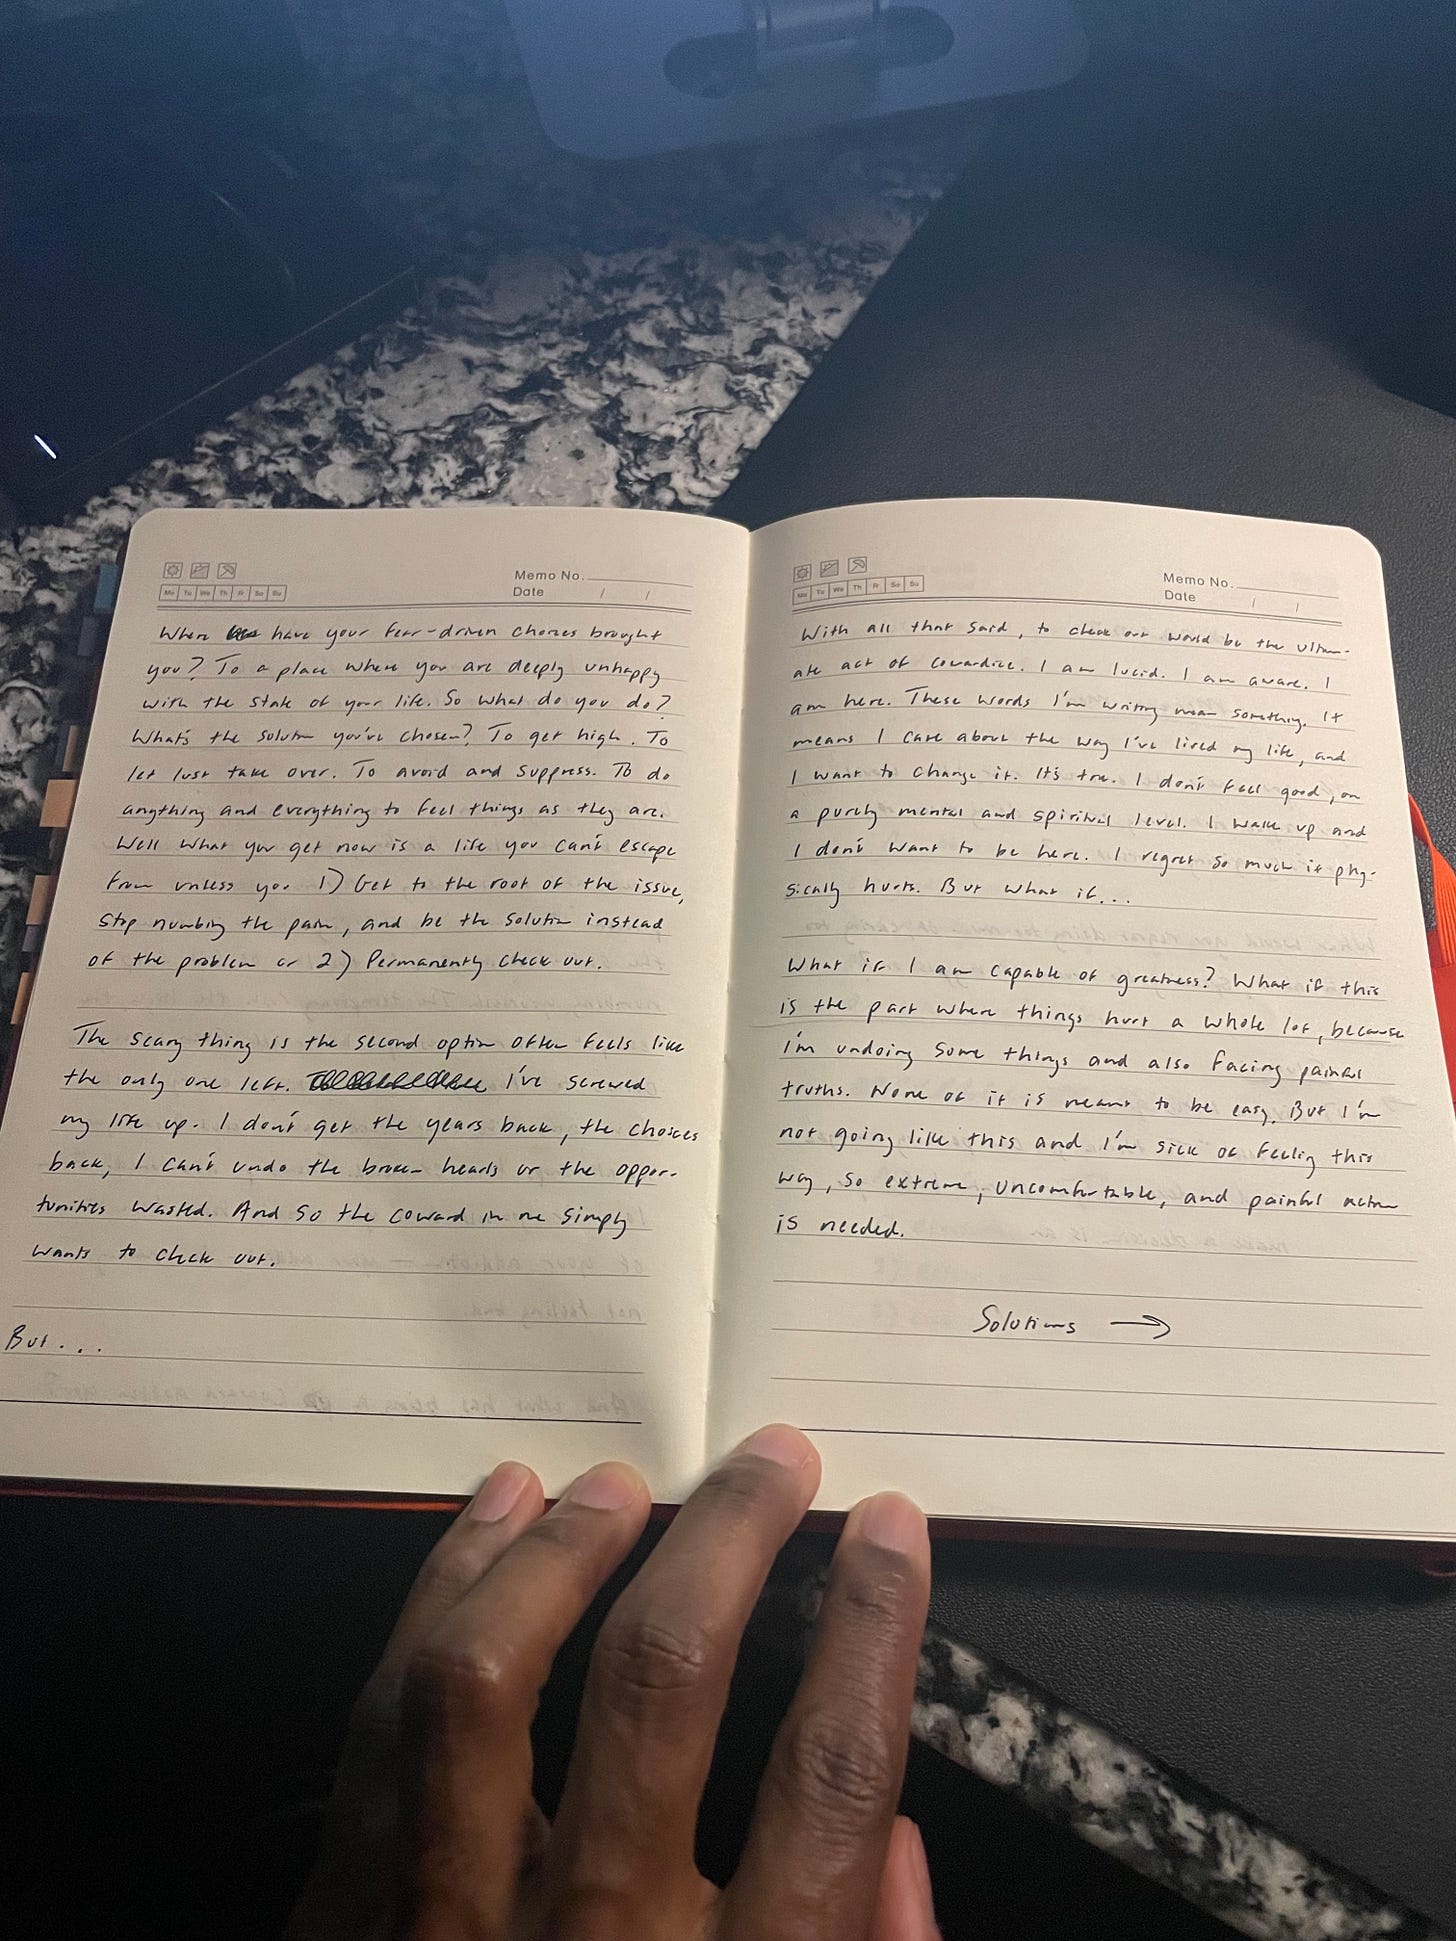 Memo No.
Date / /
Mo Tu We Th Fr Sa Su
Where have your fear-driven choices brought
you? To a place where you are deeply unhappy
with the state of your life. So what do you do?
What's the solution you've chosen? To get high. To
let lust take over. To avoid and suppress. To do
anything and everything to feel things as they are.
Well what you get now is a life you can't escape
from unless you 1) Get to the root of the issue,
stop numbing the pain, and be the solution instead
of the problem or 2) Permanently check out.
The scary thing is the second option often feels like
the only one left. I've screwed
my life up. I don't get the years back, the choices
back, I can't undo the broken hearts or the oppor-
tunities wasted. And so the coward in me simply
wants to check out.
But...
Memo No.
Date / /
Mo Tu We Th Fr Sa Su
With all that said, to check out would be the ultim-
ate act of cowardice. I am lucid. I am aware. I
am here. These words I'm writing mean something. It
means I care about the way I've lived my life, and
I want to change it. It's true. I don't feel good, on
a purely mental and spiritual level. I wake up and
I don't want to be here. I regret so much it phy-
sically hurts. But what if...
What if I am capable of greatness? What if this
is the part where things hurt a whole lot, because
I'm undoing some things and also facing painful
truths. None of it is meant to be easy. But I'm
not going like this and I'm sick of feeling this
way, so extreme, uncomfortable, and painful action
is needed.
Solutions →